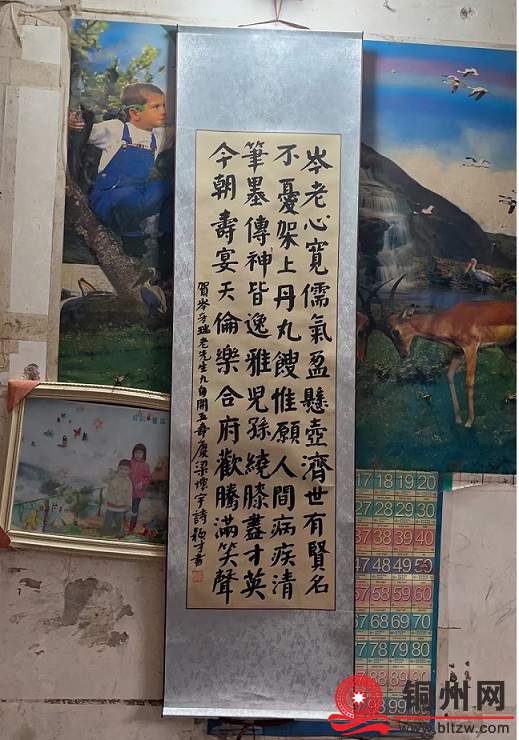 岑老心寬儒氣盈懸壺濟世有賢名
不憂架上丹丸餿惟願人間病疾清
筆墨傳神皆逸雅兒孫繞膝盡才英
今朝壽宴天倫樂合府歡騰滿笑聲
賀岑瑞老先生九旬開五壽慶梁懷宇詩書
17 18 19 20
27 28 29 30
37 38 39 40
47 48 49 50
57 58 59 60
67 68 69 70
77 78 79 80
87 88 89 90
铜州网
www.bltzw.com